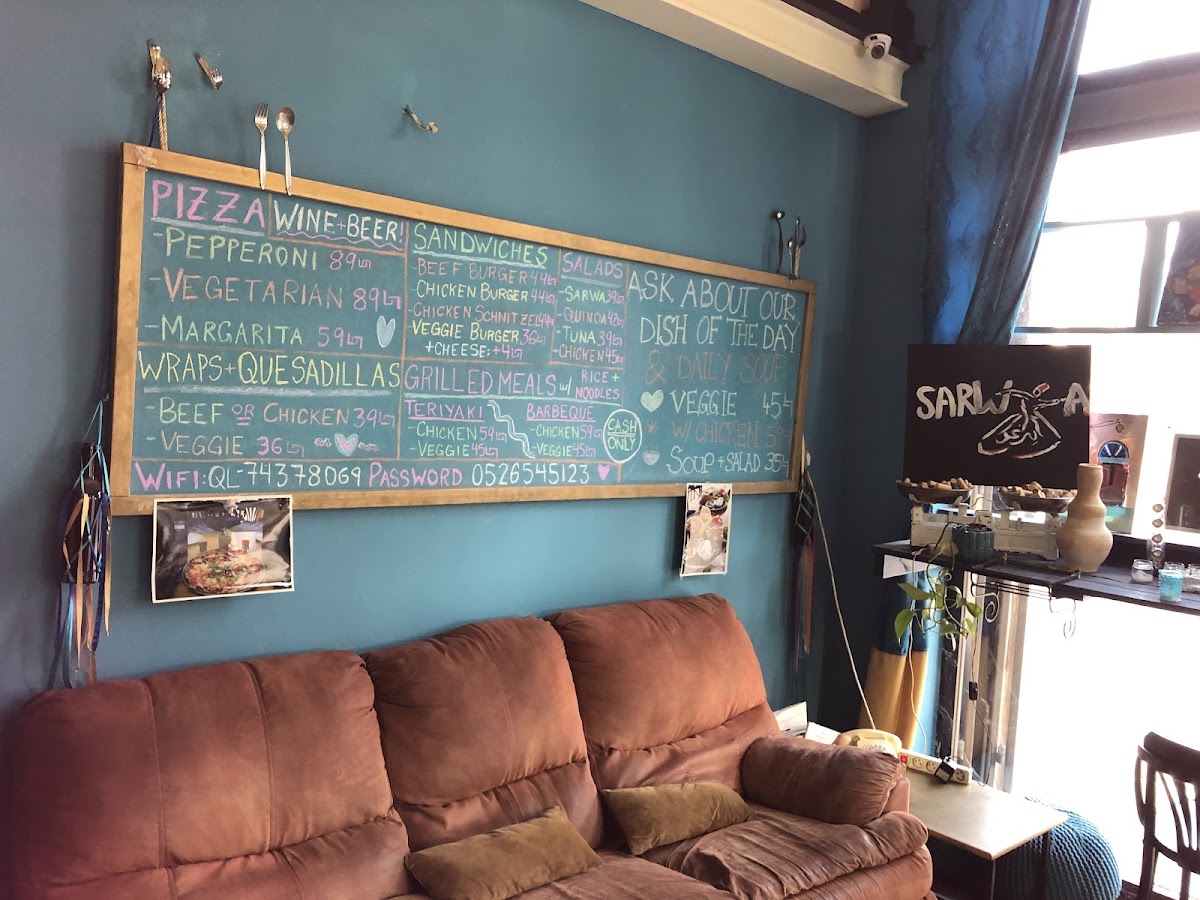 PIZZA
-PEPPERONI 89₪
-VEGETARIAN 89₪
-MARGARITA 59₪
WINE+BEER!
WRAPS+QUESADILLAS
-BEEF OR CHICKEN 39₪
-VEGGIE 36₪
SANDWICHES
-BEEF BURGER 44₪
-CHICKEN BURGER 44₪
-CHICKEN SCHNITZEL 44₪
VEGGIE BURGER 36₪
+CHEESE:+4₪
SALADS
-SARWA 39₪
-QUINOA 42₪
-TUNA 39₪
-CHICKEN 45₪
GRILLED MEALS W/ RICE + NOODLES
TERIYAKI
-CHICKEN 59₪
-VEGGIE 45₪
BARBEQUE
-CHICKEN 59₪
-VEGGIE 45₪
CASH
ONLY
ASK ABOUT OUR
DISH OF THE DAY
& DAILY SOUP
VEGGIE 45₪
W/ CHICKEN 59₪
SOUP+SALAD 35₪
WIFI: QL-74378069 PASSWORD 0526545123
SARWA